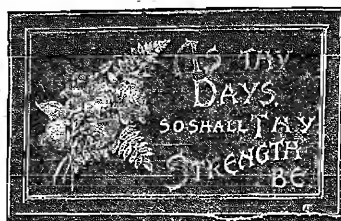 AS THY
DAYS,
SO SHALL THY
STRENGTH
BE